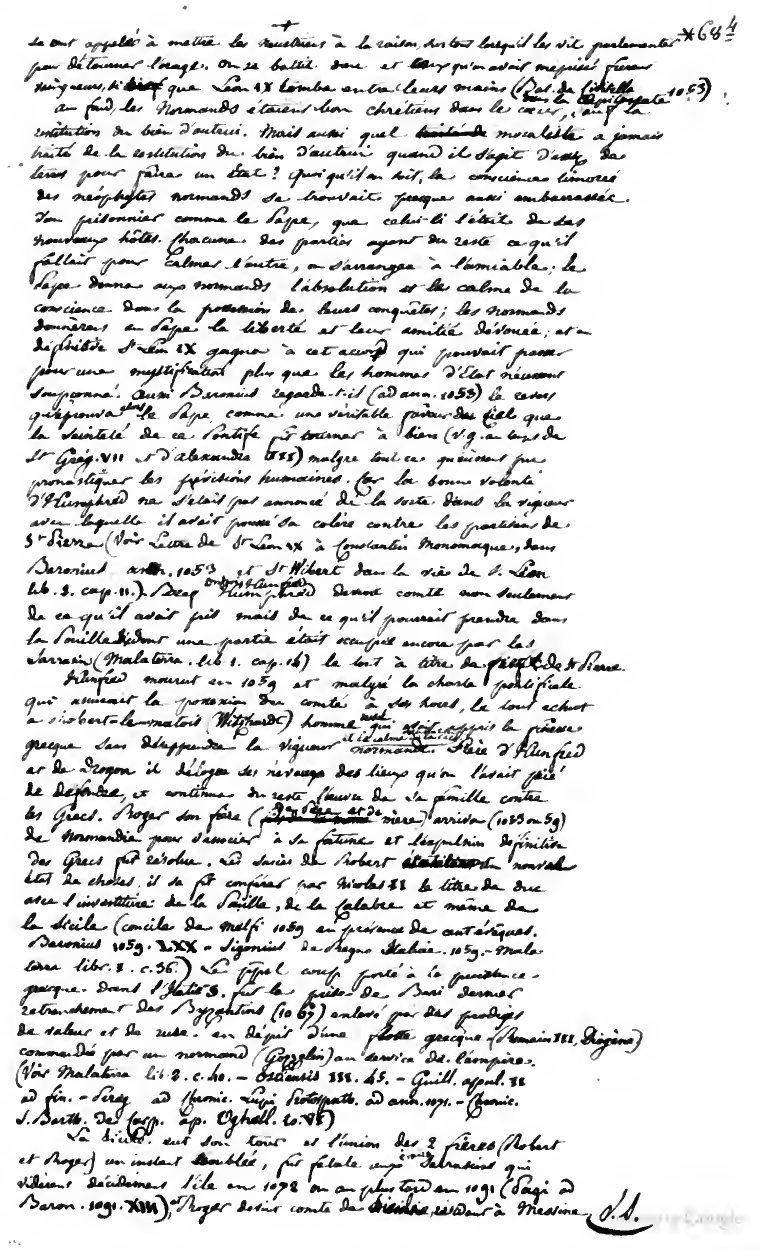 *68 4
se ont appelés à mettre les neustriens à la raison, surtout lorsqu'il les vit parlementer
pour détourner l'orage. On se battit donc et ceux qu'on avait méprisé furent
vainqueurs, si bien que Léon IX tomba entre leurs mains (Bat. de Civitella
dans la Capitanate 1053)
au fond, les Normands étaient bon chrétiens dans le cœur, sauf la
restitution du bien d'autrui. Mais aussi quel moraliste a jamais
traité de la restitution du bien d'autrui quand il s'agit d'assez de
terres pour faire un Etat? Quoi qu'il en soit, la conscience timorée
des néophytes normands se trouvait presque aussi embarrassée
d'un prisonnier comme le Pape, que celui-ci l'était de ses
nouveaux hôtes. Chacune des parties ayant du reste ce qu'il
fallait pour calmer l'autre, on s'arrangea à l'amiable; le
Pape donna aux normands l'absolution et le calme de la
conscience dans la possession de leurs conquêtes; les normands
donnèrent au Pape la liberté et leur amitié dévouée; et en
définitive St Léon IX gagna à cet accord qui pouvait passer
pour une mystification plus que les hommes d'Etat n'eussent
soupçonné. Aussi Baronius regarde-t-il (ad ann. 1053) le revers
qu'éprouva alors le Pape comme une véritable faveur du Ciel que
la sainteté de ce Pontife fit tourner à bien (v.g. au temps de
St Grég. VII et d'Alexandre III) malgré tout ce qu'eussent pu
pronostiquer les prévisions humaines. Car la bonne volonté
d'Humphred ne s'était pas annoncé de la sorte dans la vigueur
avec laquelle il avait poussé sa colère contre les partisans de
St Pierre (Voir Lettre de St Léon IX à Constantin Monomaque, dans
Baronius ann. 1053 et St Wibert dans la vie de S. Léon
lib. 2. cap. 11.). Bref Humfred devint comte non seulement
de ce qu'il avait pris mais de ce qu'il pourrait prendre dans
la Pouille dont une partie était occupée encore par les
Sarrasins (Malaterra. lib 1. cap. 14) le tout à titre de fief de St Pierre.
Hunfred mourut en 1059 et malgré la charte pontificale
qui assurait la possession du comté à ses hoirs, le tout échut
a Robert-le-matois (Wiszhardt) homme qui avait appris la finesse
grecque sans désapprendre la vigueur normande. Frère d'Hunfred
et de Drogon il délogea ses neveux des lieux qu'on l'avait prié
de défendre, et continua du reste l'œuvre de sa famille contre
les Grecs. Roger son frère (de père et de mère) arriva (1053 ou 59)
de Normandie pour s'associer à sa fortune et l'expulsion définitive
des Grecs fut résolue. Les succès de Robert nouvel
état de choses, il se fit conférer par Nicolas II le titre de duc
avec l'investiture de la Pouille, de la Calabre et même de
la Sicile (concile de Melfi 1059 en présence de cent évêques.
Baronius 1059. LXX - Sigonius de Regno Italiæ. 1059. - Mala
terra libr. I. c. 36.) Le coup porté à la puissance
grecque dans l'Italie fut la prise de Bari dernier
retranchement des Byzantins (1067) enlevé par des prodiges
de valeur et de ruse. en dépit d'une flotte grecque (Romain III, Diogène)
commandée par un normand (Gozzelin) au service de l'empire.
(Voir Malaterra lib. 2. c. 40. - Ostiensis III. 45. - Guill. appul. II
ad fin. - Pereg ad Chronic. Lupi Protospath. ad ann. 1071. - Chronic.
S. Barth. de Carp. ap. Ughell. to. VII)
La Sicile eut son tour et l'union des 2 frères (Robert
et Roger) un instant troublée, fut fatale aux Sarrasins qui
vidèrent décidément l'île en 1072 ou au plus tard en 1091 (Pagi ad
Baron. 1091. XIII), et Roger devint comte de Sicile, résidant à Messine.